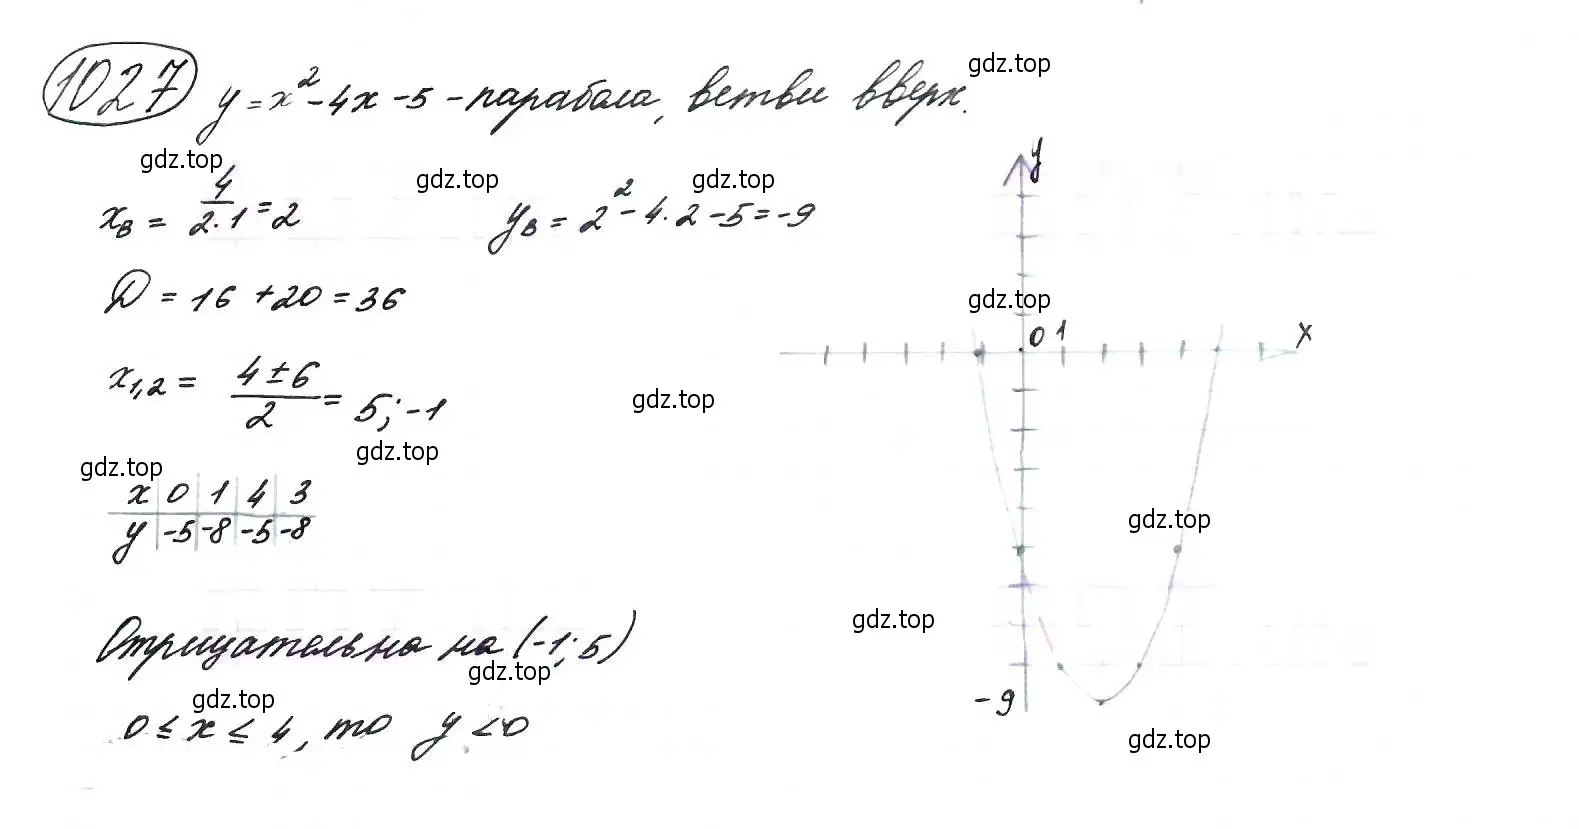 1027 y = x² - 4x - 5 - парабола, ветви вверх.
gdz.top
gdz.top
gdz.top
gdz.top
x_в = 4/(2·1) = 2
y_в = 2² - 4·2 - 5 = -9
D = 16 + 20 = 36
x₁,₂ = (4 ± 6)/2 = 5; -1
gdz.top
gdz.top
gdz.top
x 0 1 4 3
y -5 -8 -5 -8
Отрицательна на (-1; 5)
gdz.top
gdz.top
0 ≤ x ≤ 4, то y < 0
y
gdz.top
0 1
x
gdz.top
gdz.top
-9
gdz.top